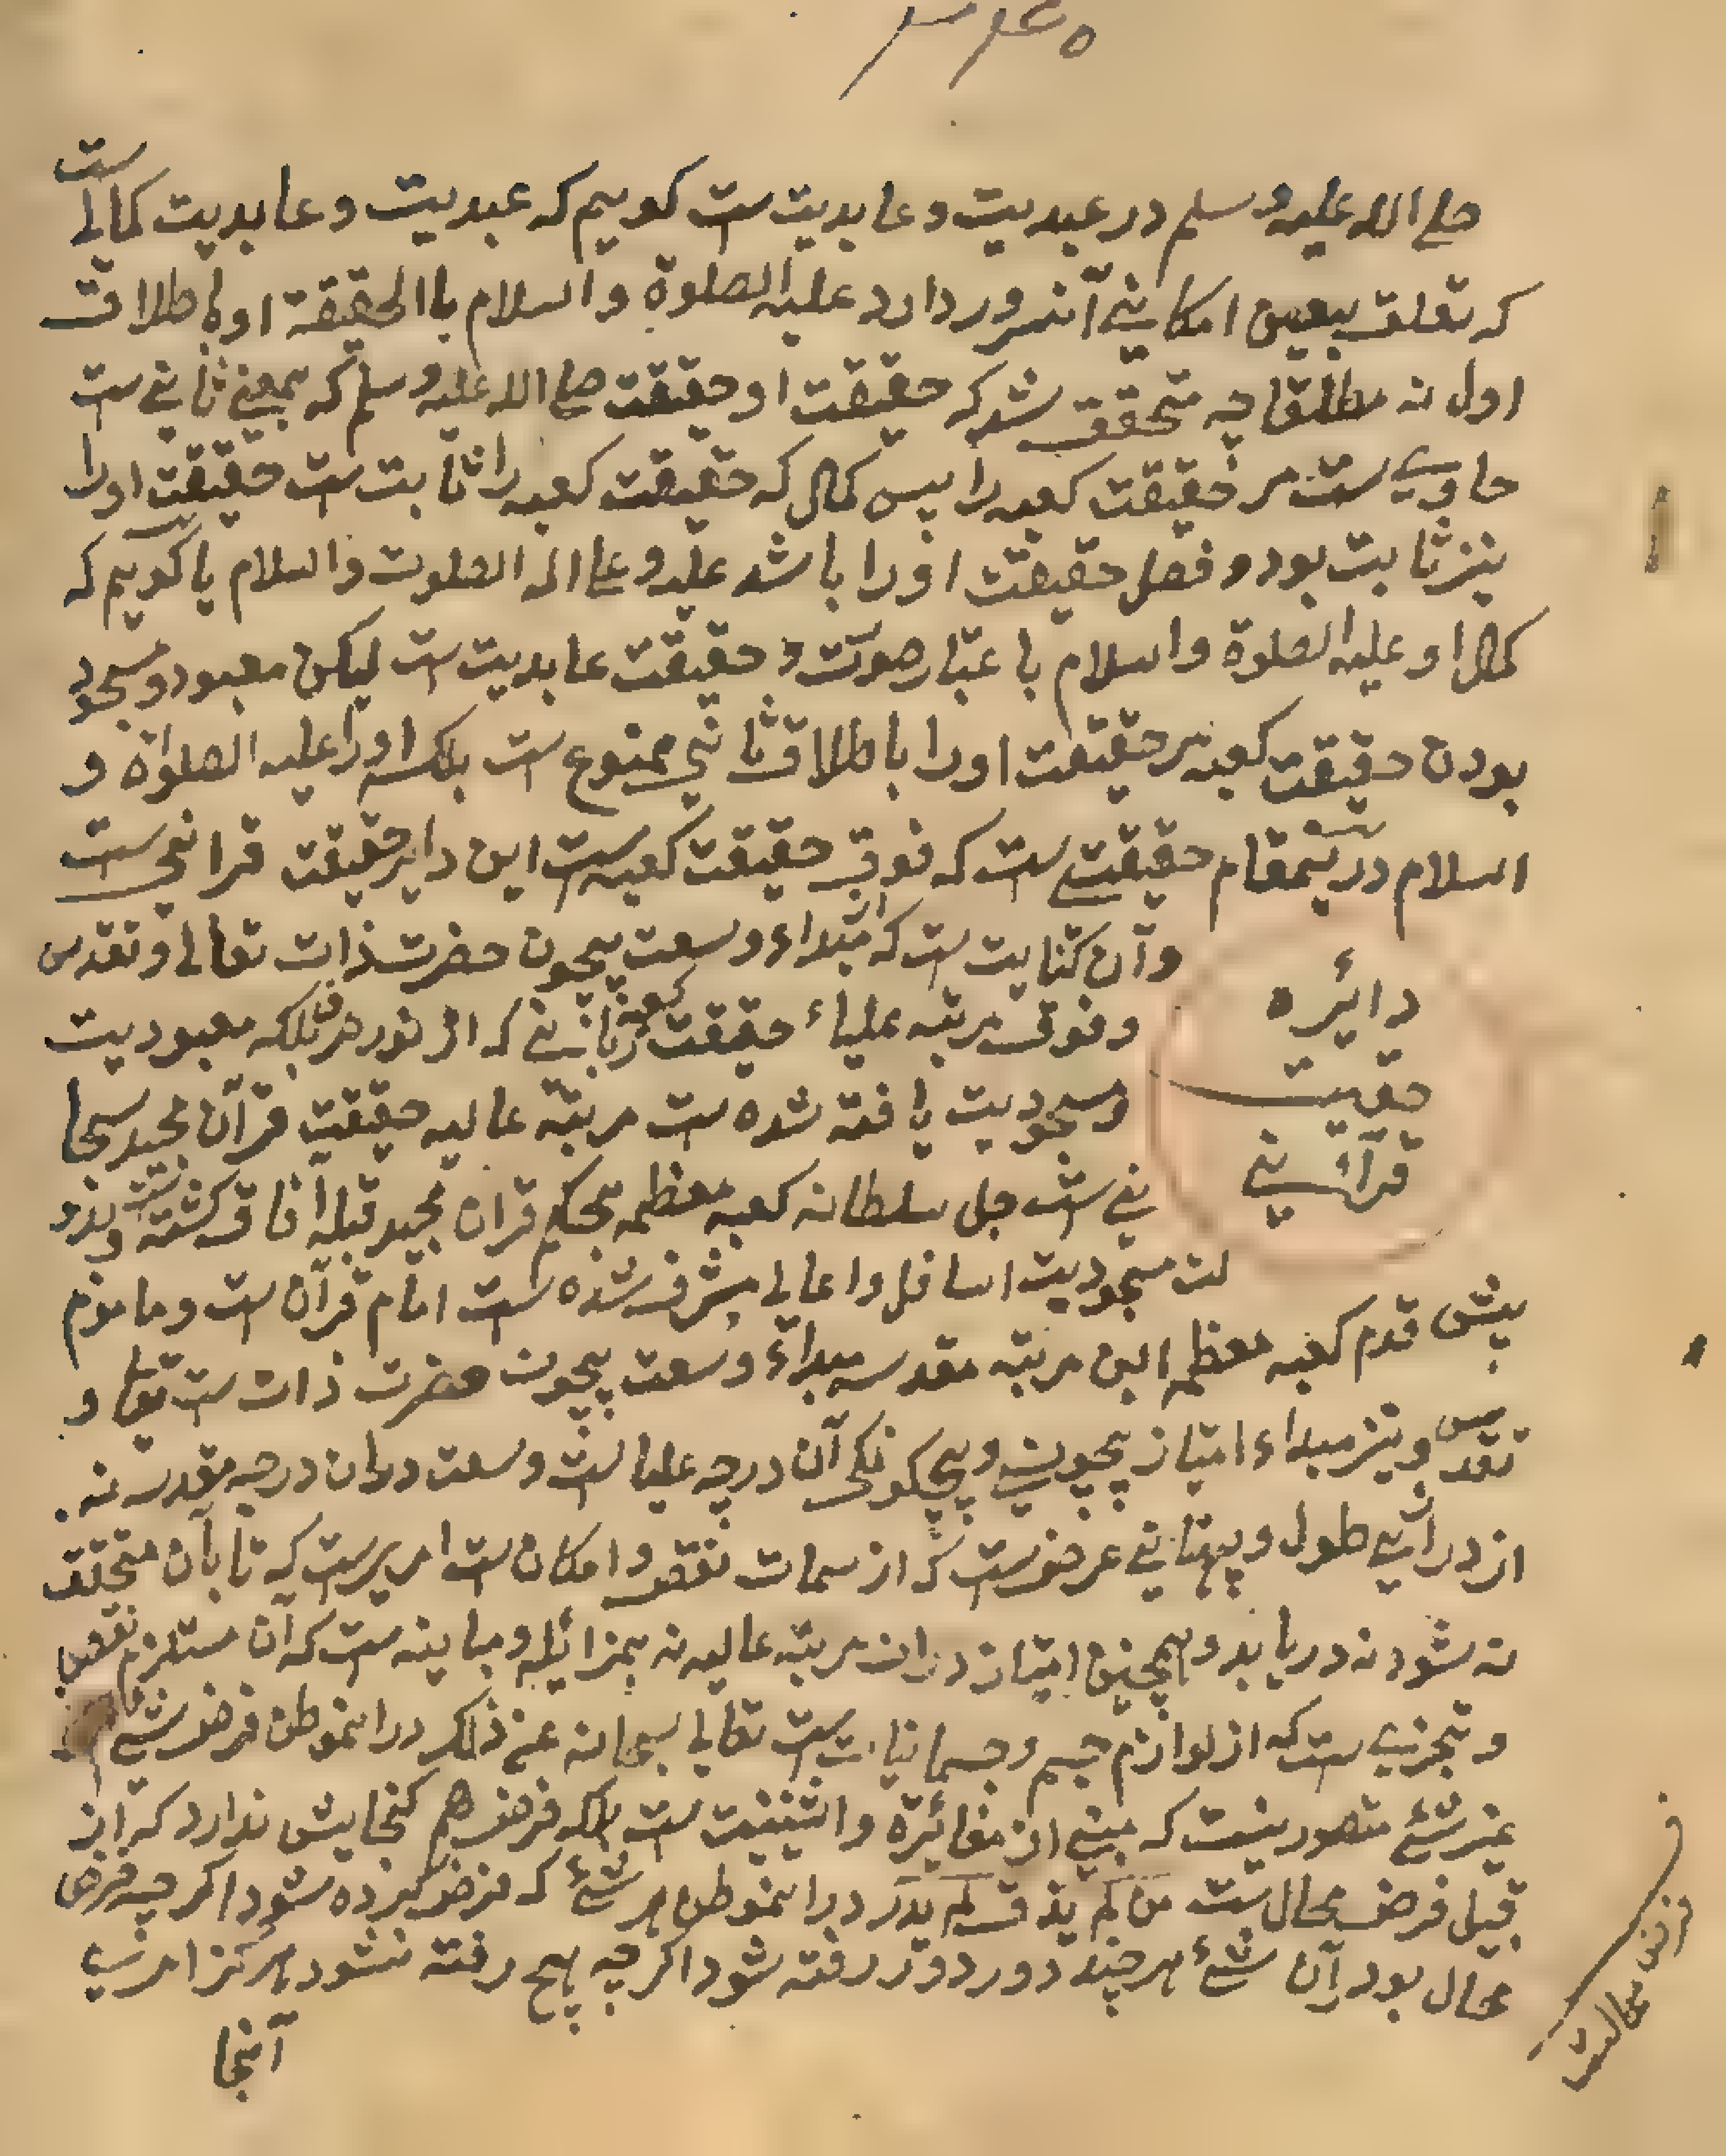 صلی الله علیه وسلم در عبدیت و عابدیت ست کوییم که عبدیت و عابدیت کمالی ست
که تعلق بتعین امکانی آنسرور دارد علیه الصلوة والسلام باالحقیقة او باطلاق
اول نه مطلقا چه متحقق شد که حقیقت او حقیقت صلی الله علیه وسلم که بمعنی ثانی ست
حاوی ست مر حقیقت کعبه را پس کمال که حقیقت کعبه را ثابت ست حقیقت او را
نیز ثابت بود و فضل حقیقت او را باشد علیه و علی اله الصلوت والسلام یا کوییم که
کمال او علیه الصلوة واسلام باعتبار صورت و حقیقت عابدیت ست لیکن معبود و مسجود
بودن حقیقت کعبه مر حقیقت او را باطلاق ثانی ممنوع ست بلکه او را علیه الصلوة و
اسلام درینمقام حقیقتی ست که فوق حقیقت کعبه ست این دایر حقیقت قرانی ست
وآن کنایت ست که مبتداء وسعت بیچون حضرت ذات تعالی وتقدس
وفوق مرتبه علیاء حقیقت کعبه ربانی که از نور صرف بلکه معبودیت
ومسجودیت یافته شده ست مرتبه عالیه حقیقت قرآن مجید سبحا
نی ست جل سلطانه کعبه معظمه بحکم قران مجید قبله آفاق کشته ست وبدو
لت مسجودیت اسافل واعالی مشرف شده ست امام قرآن ست و ماموم
دائره
حقیقت
قرآنی
پیش قدم کعبه معظمه این مرتبه مقدسه مبداء وسعت بیچون حضرت ذات ست تعالی و
تقدس ونیز مبداء امتیاز بیچونی وبیچکونکی آن درجه علیا ست وسعت دران درجه مقدسه نه
از درازی طول وپهنایی عرض ست که از سمات نقص و امکان ست امریست که تا بآن متحقق
نه شود نه دریابد وهمچنین امتیاز دران مرتبه عالیه نه بمزائله ومباینه ست که آن مستلزم تبعض
وتجزی ست که از لوازم جسم وجسمانیات ست تعالی سبحانه عن ذلک درانموطن فرض شئ
غیر شئ متصور نیست که مبنی از مغائرة واثنینیت ست بلکه فرض هم کنجایش ندارد که از
قبیل فرض محال ست من لم یذق لم یدر درانموطن هر شئ که فرض کرده شود اکرچه فرض
محال بود آن شئ هر چند دور دور رفته شود اکرچه هیچ رفته نشود هرکز امری
آنجا
فرض محال بود